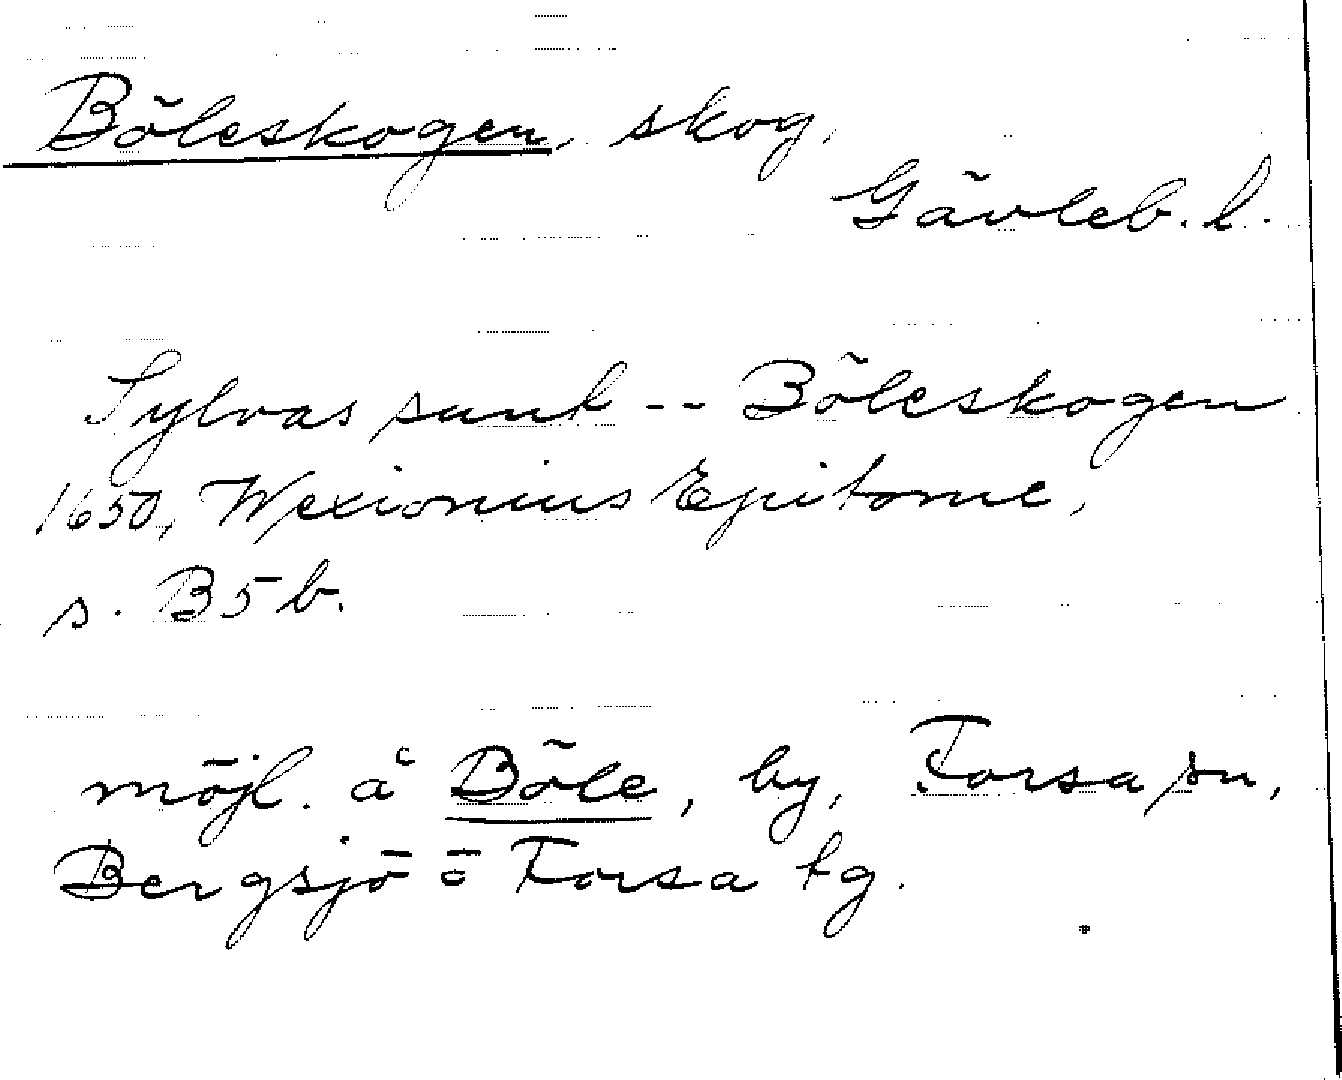 Böleskogen, skog,
Gävleb. l.
Sylvas sunt -- Böleskogen
1650, Wexionius Epitome,
s. B5b.
möjl. å Böle, by, Forsa sn,
Bergsjö o Forsa tg.